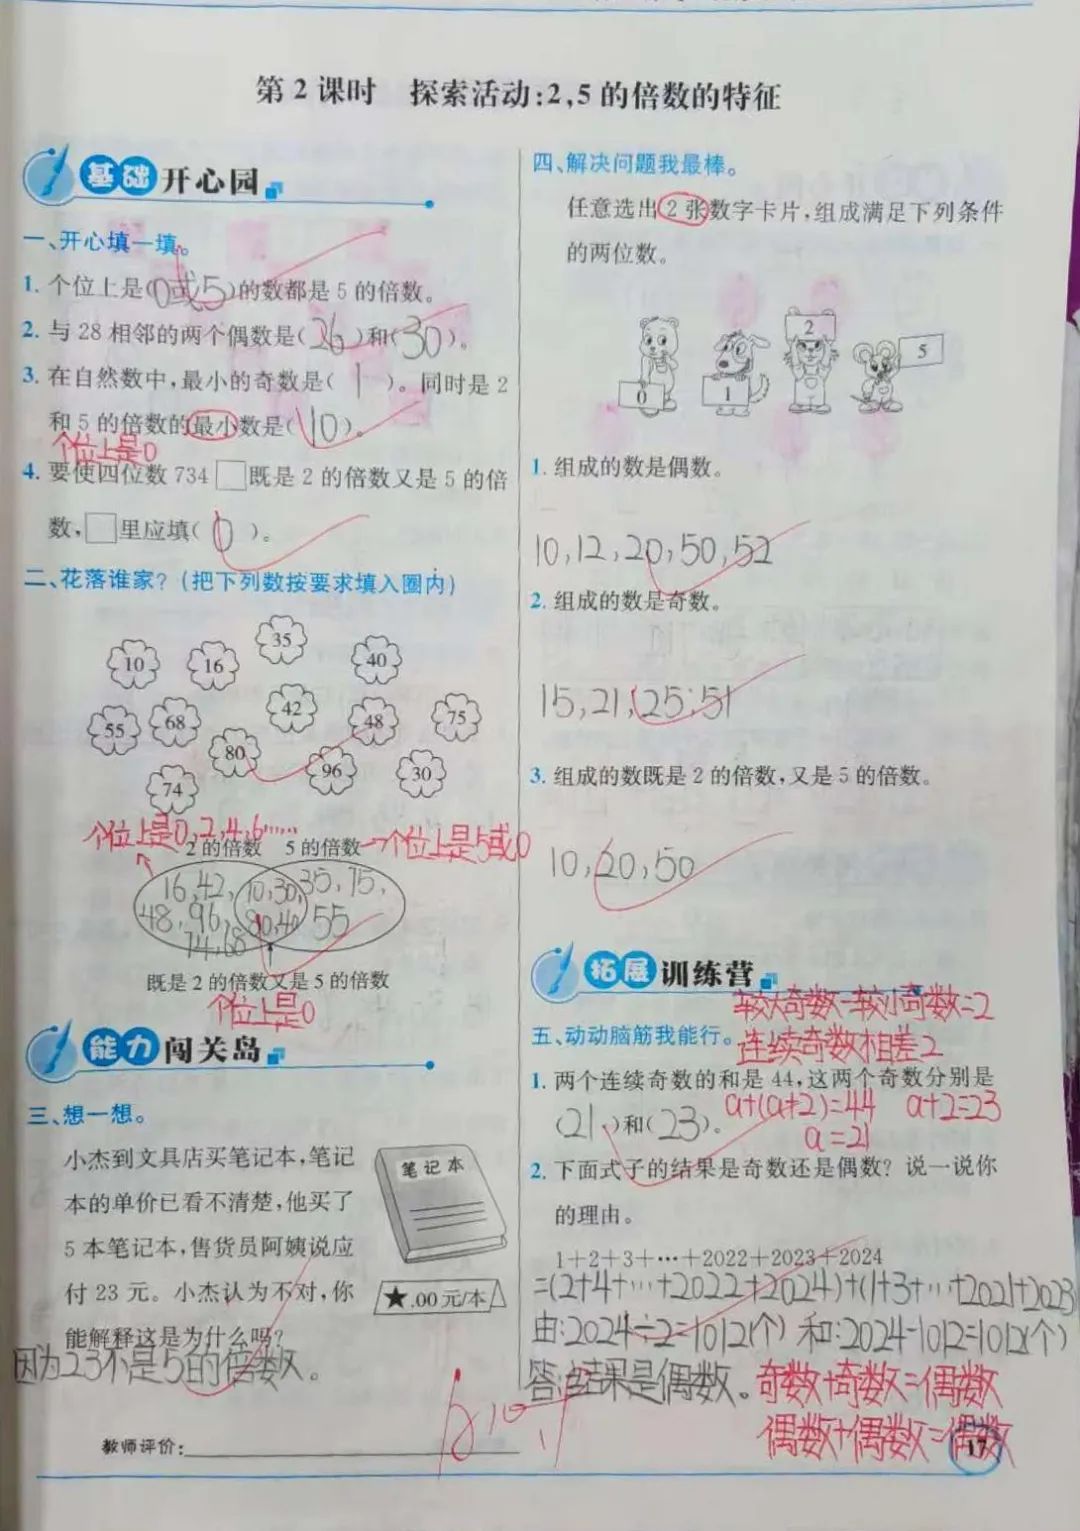 第2课时 探索活动:2,5的倍数的特征
基础 开心园
一、开心填一填。
1. 个位上是(0或5)的数都是5的倍数。
2. 与28相邻的两个偶数是(26)和(30)。
3. 在自然数中,最小的奇数是(1)。同时是2
和5的倍数的最小数是(10)。
个位上是0
4. 要使四位数734□既是2的倍数又是5的倍
数,□里应填(0)。
二、花落谁家?(把下列数按要求填入圈内)
35
10 16 40
42
55 68 48 75
80
96 30
74
个位上是0,2,4,6……
2的倍数 5的倍数→个位上是5或0
16,42, 10,30, 35,75,
48,96, 80,40 55
74,68
既是2的倍数又是5的倍数
个位上是0
能力 闯关岛
三、想一想。
小杰到文具店买笔记本,笔记
本的单价已看不清楚,他买了
5本笔记本,售货员阿姨说应
付23元。小杰认为不对,你
能解释这是为什么吗?
笔记本
★.00元/本
因为23不是5的倍数。
教师评价:
四、解决问题我最棒。
任意选出2张数字卡片,组成满足下列条件
的两位数。
0 1 2 5
1. 组成的数是偶数。
10,12,20,50,52
2. 组成的数是奇数。
15,21,25,51
3. 组成的数既是2的倍数,又是5的倍数。
10,20,50
拓展 训练营
较大奇数-较小奇数=2
五、动动脑筋我能行。
连续奇数相差2
1. 两个连续奇数的和是44,这两个奇数分别是
(21)和(23)。
a+(a+2)=44 a+2=23
a=21
2. 下面式子的结果是奇数还是偶数?说一说你
的理由。
1+2+3+…+2022+2023+2024
=(2+4+…+2022+2024)+(1+3+…+2021+2023
由:2024÷2=1012(个) 和:2024-1012=1012(个)
答:结果是偶数。
奇数+奇数=偶数
偶数+偶数=偶数
17